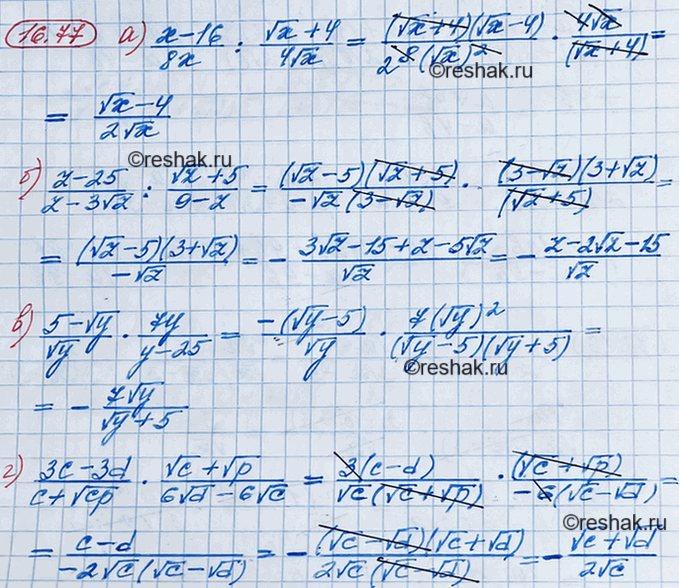 16.77 а) (x-16)/(8x) : (√x+4)/(4√x) = ((√x+4)(√x-4))/(2 8(√x)²) · (4√x)/((√x+4)) =
©reshak.ru
= (√x-4)/(2√x)
©reshak.ru
б) (z-25)/(z-3√z) : (√z+5)/(9-z) = ((√z-5)(√z+5))/(-√z(3-√z)) · ((3-√z)(3+√z))/((√z+5)) =
= ((√z-5)(3+√z))/(-√z) = - (3√z-15+z-5√z)/(√z) = - (z-2√z-15)/(√z)
в) (5-√y)/(√y) · (7y)/(y-25) = (-(√y-5))/(√y) · (7(√y)²)/((√y-5)(√y+5)) =
©reshak.ru
= - (7√y)/(√y+5)
г) (3c-3d)/(c+√cp) · (√c+√p)/(6√d-6√c) = (3(c-d))/(√c(√c+√p)) · ((√c+√p))/(-6(√c-√d)) =
©reshak.ru
= (c-d)/(-2√c(√c-√d)) = - ((√c-√d)(√c+√d))/(2√c(√c-√d)) = - (√c+√d)/(2√c)